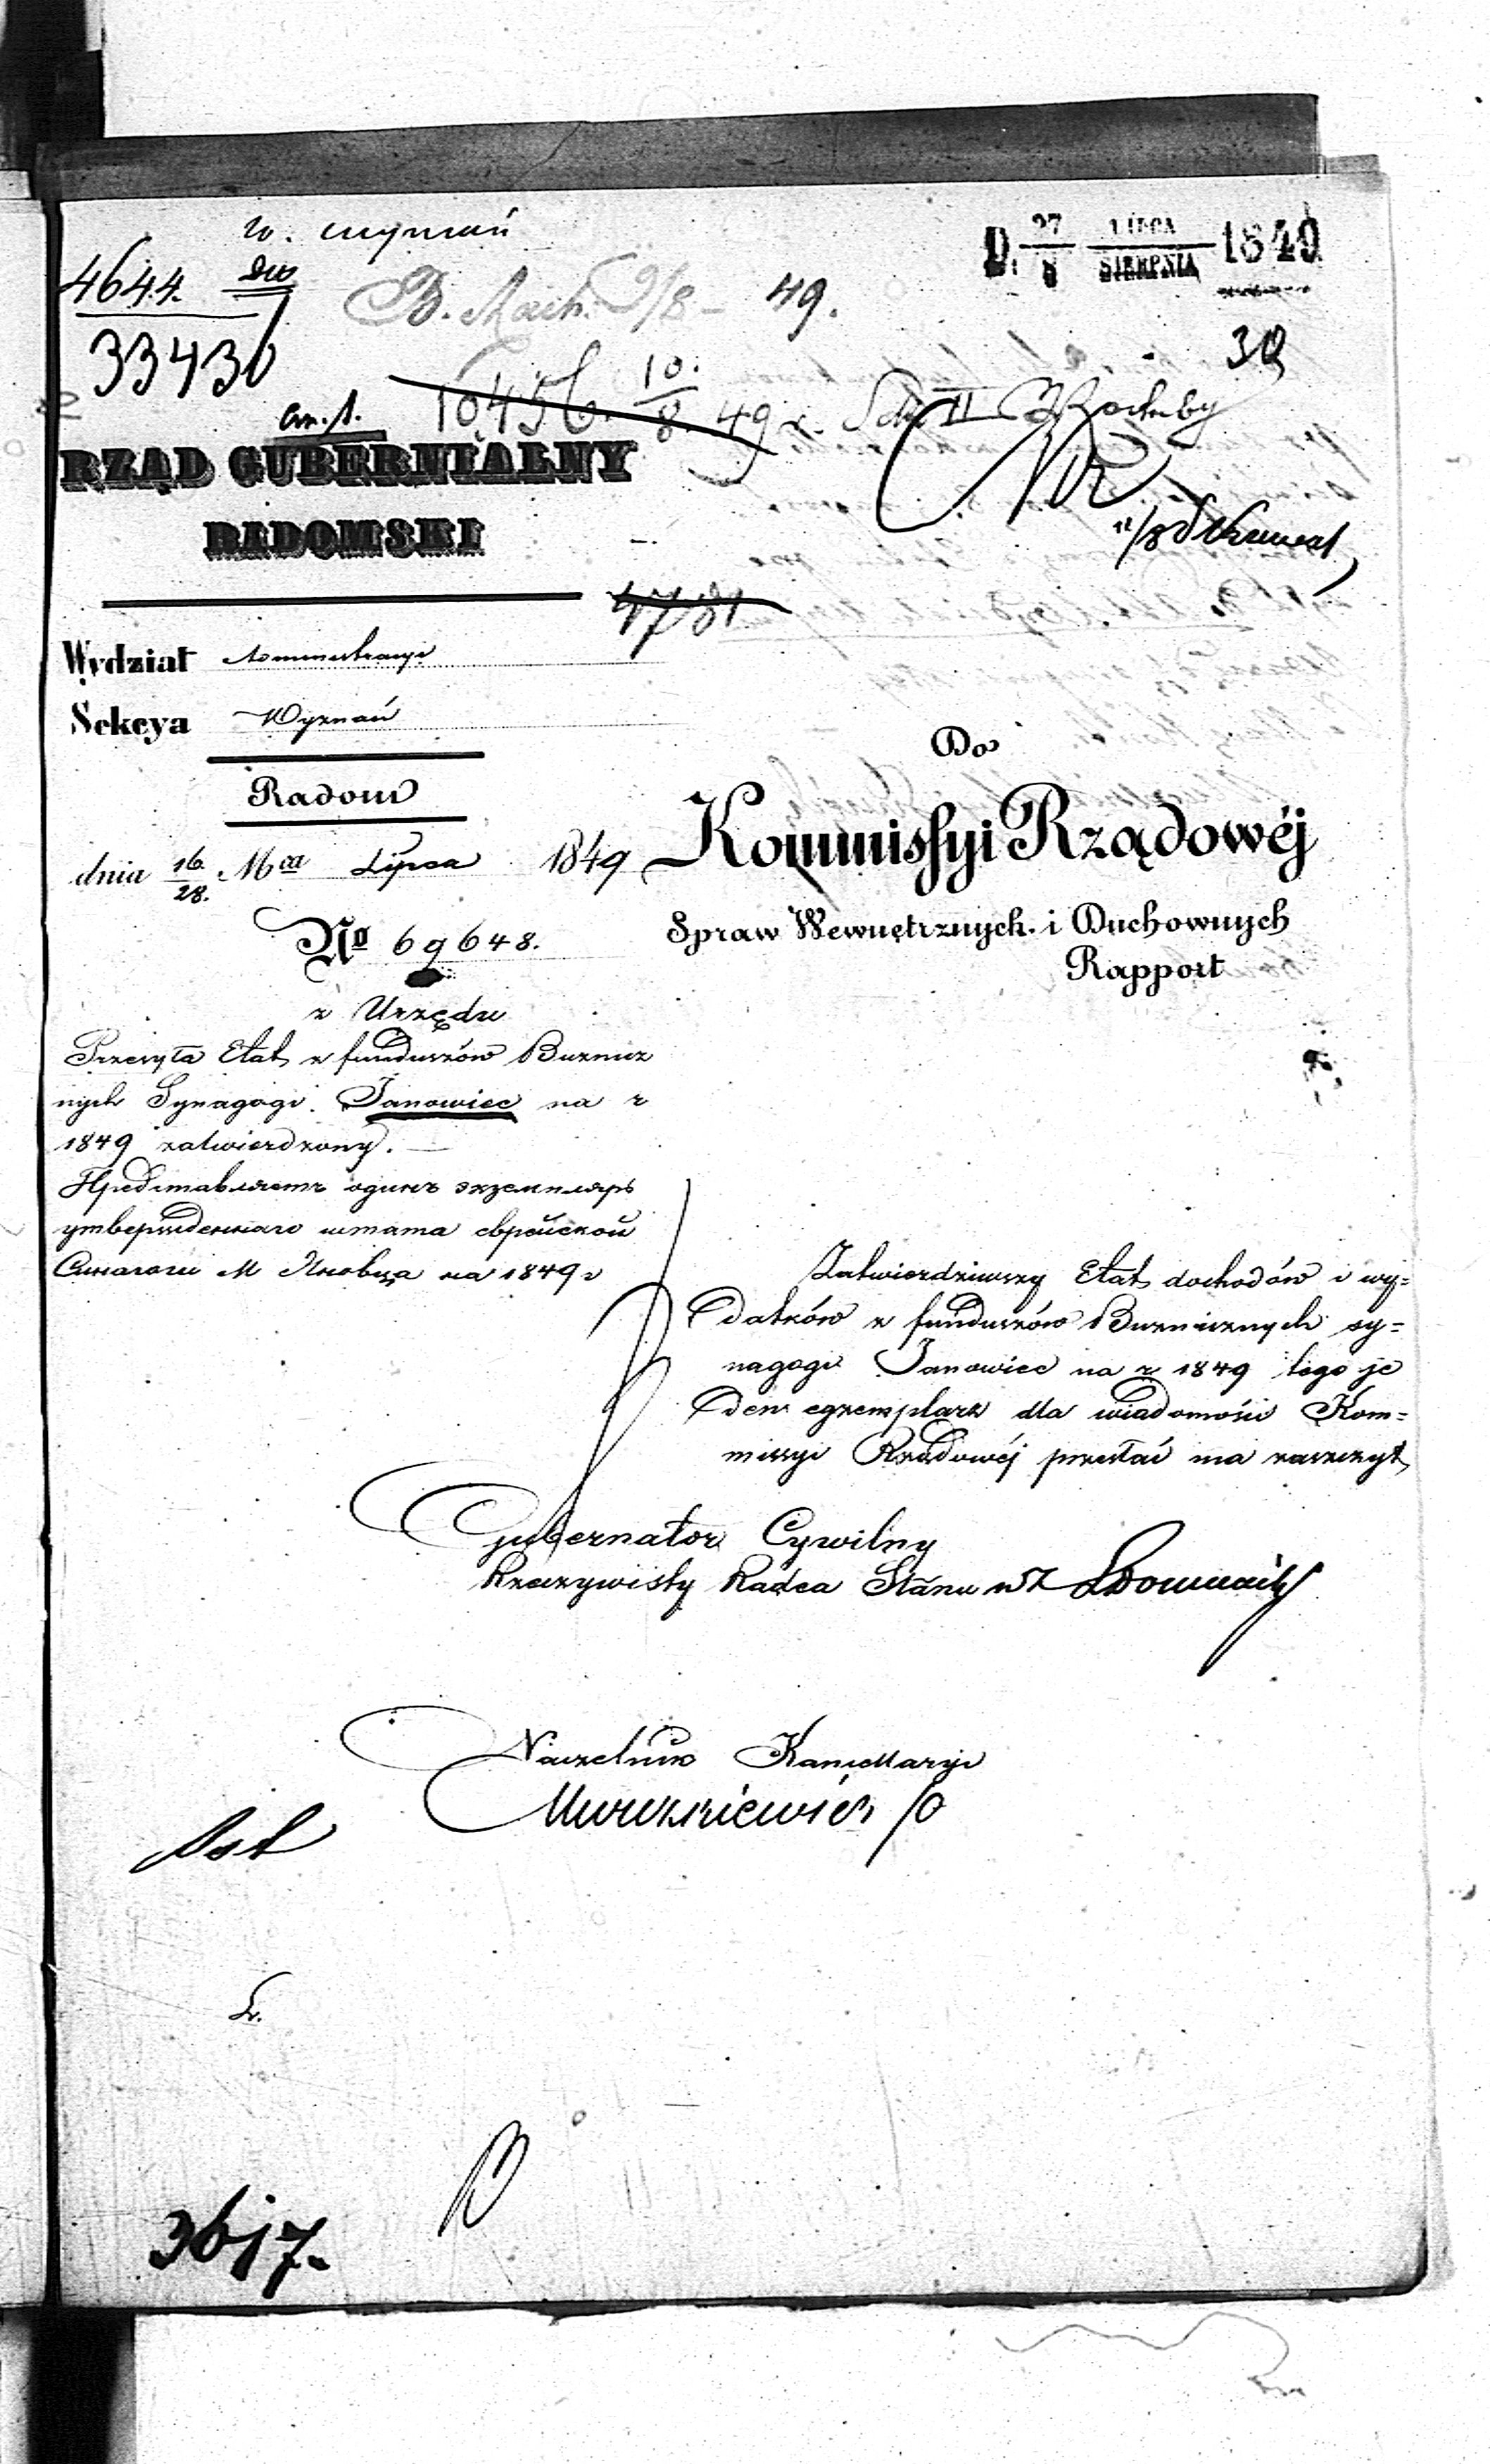 w. wyznań
4644. dw
33430
D. 27/8 LIPCA/SIERPNIA 1849
B. Rach. 9/8 - 49.
30
16456. 10./8. 49 r.
RZĄD GUBERNIALNY
RADOMSKI
4781
Wydział Administracyi
Sekcya Wyznań
Radom
dnia 16/28. Mca Lipca 1849
No 69648.
z Urzędu
Przesyła Etat z funduszów Bużnicz
nych Synagogi Janowiec na r
1849 zatwierdzony. —
Представляетъ одинъ экземпляръ
утвержденнаго штата еврейской
Синагоги М Яновца на 1849 г
Do
Kommissyi Rządowéj
Spraw Wewnętrznych i Duchownych
Rapport
Zatwierdziwszy Etat dochodów i wy=
datków z funduszów Bużnicznych sy=
nagogi Janowiec na r 1849 tego je
den egzemplarz dla wiadomości Kom=
missyi Rządowéj przesłać ma zaszczyt
Gubernator Cywilny
Rzeczywisty Radca Stanu wz
Naczelnik Kancellaryi
3617.